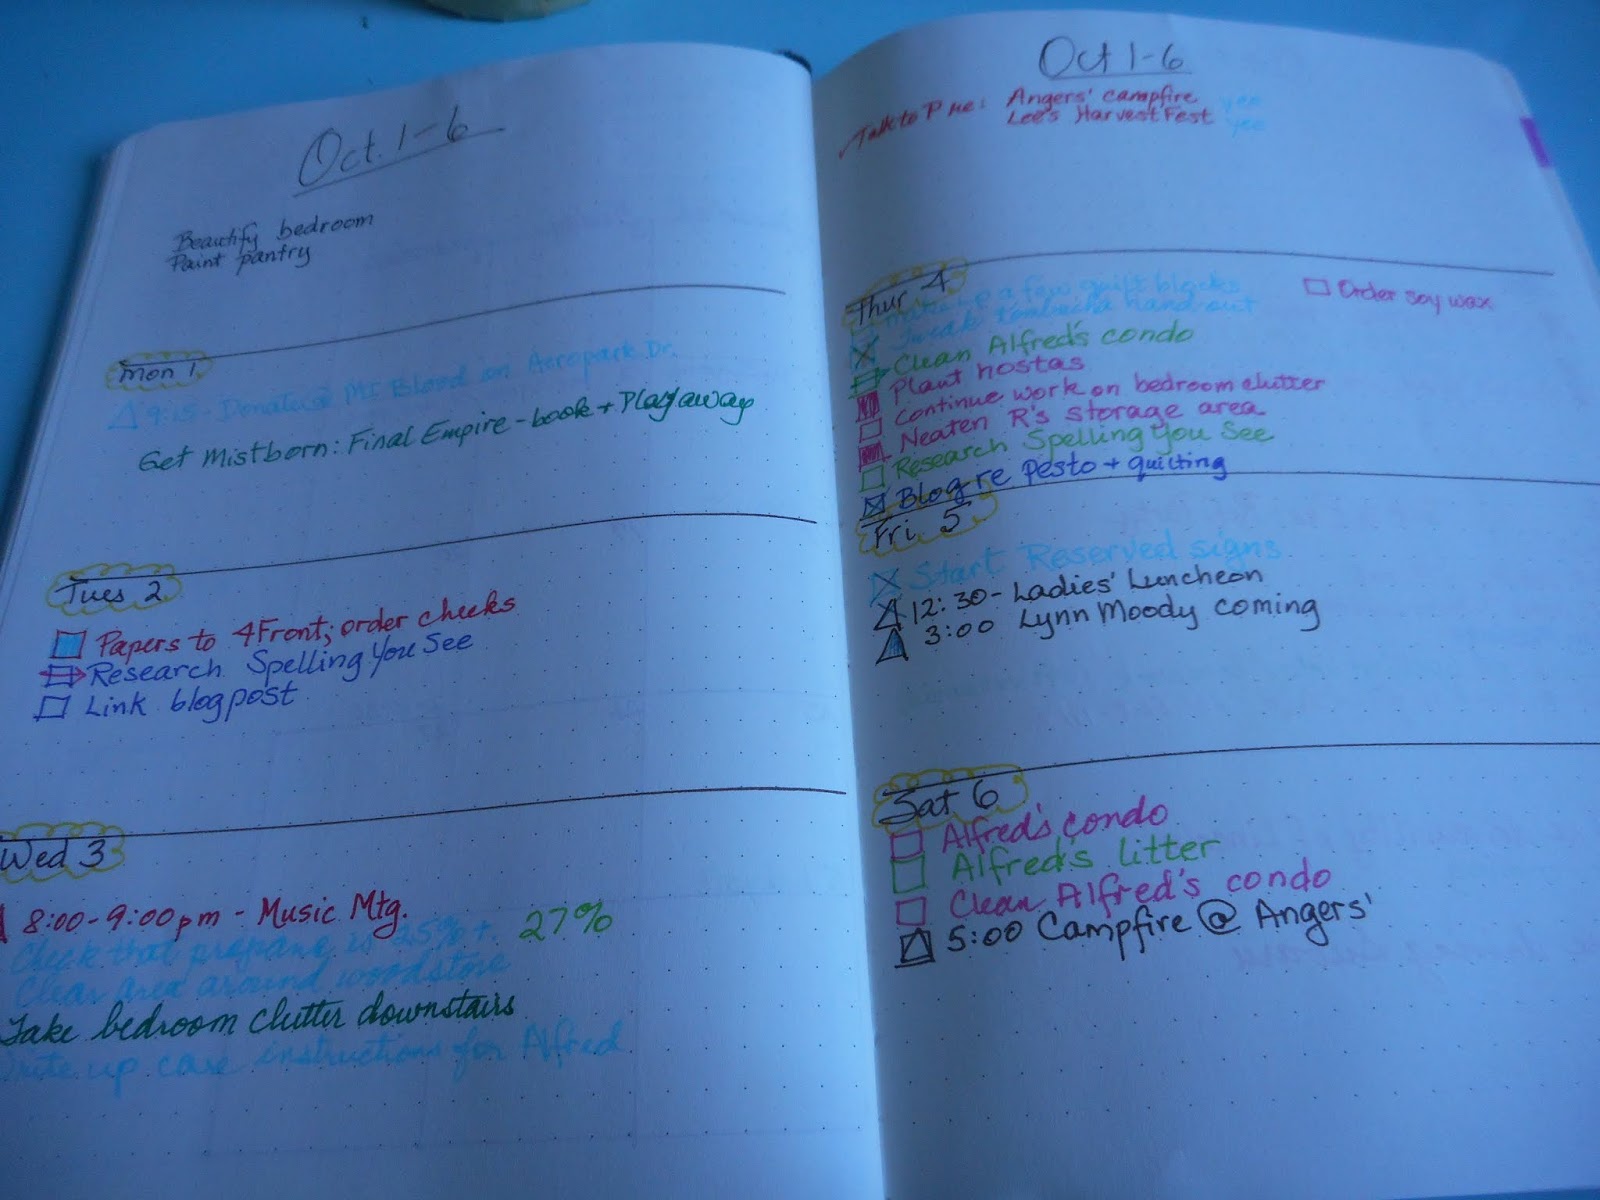 Oct. 1-6
Beautify bedroom
Paint pantry
Mon 1
9:15 - Donate @ MI Blood on Aeropark Dr.
Get Mistborn: Final Empire - book + Playaway
Tues 2
Papers to 4Front; order checks
Research Spelling You See
Link blogpost
Wed 3
8:00-9:00pm - Music Mtg.
Check that propane is 25%+. 27%
Clear area around woodstove
Take bedroom clutter downstairs
Write up care instructions for Alfred
Oct 1-6
Talk to P re: Angers' campfire yes
Lee's HarvestFest yes
Thur 4
Make up a few quilt blocks
Order soy wax
Tweak kombucha hand-out
Clean Alfred's condo
Plant hostas
Continue work on bedroom clutter
Neaten R's storage area
Research Spelling You See
Blog re pesto + quilting
Fri 5
Start Reserved signs
12:30 - Ladies' Luncheon
3:00 Lynn Moody coming
Sat 6
Alfred's condo
Alfred's litter
Clean Alfred's condo
5:00 Campfire @ Angers'